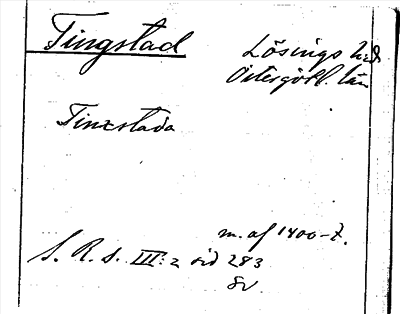 Tingstad
Lösings hd
Östergötl. län
Tinxstada
m. af 1400-t.
S. R. S. III:2 sid 283
Sv